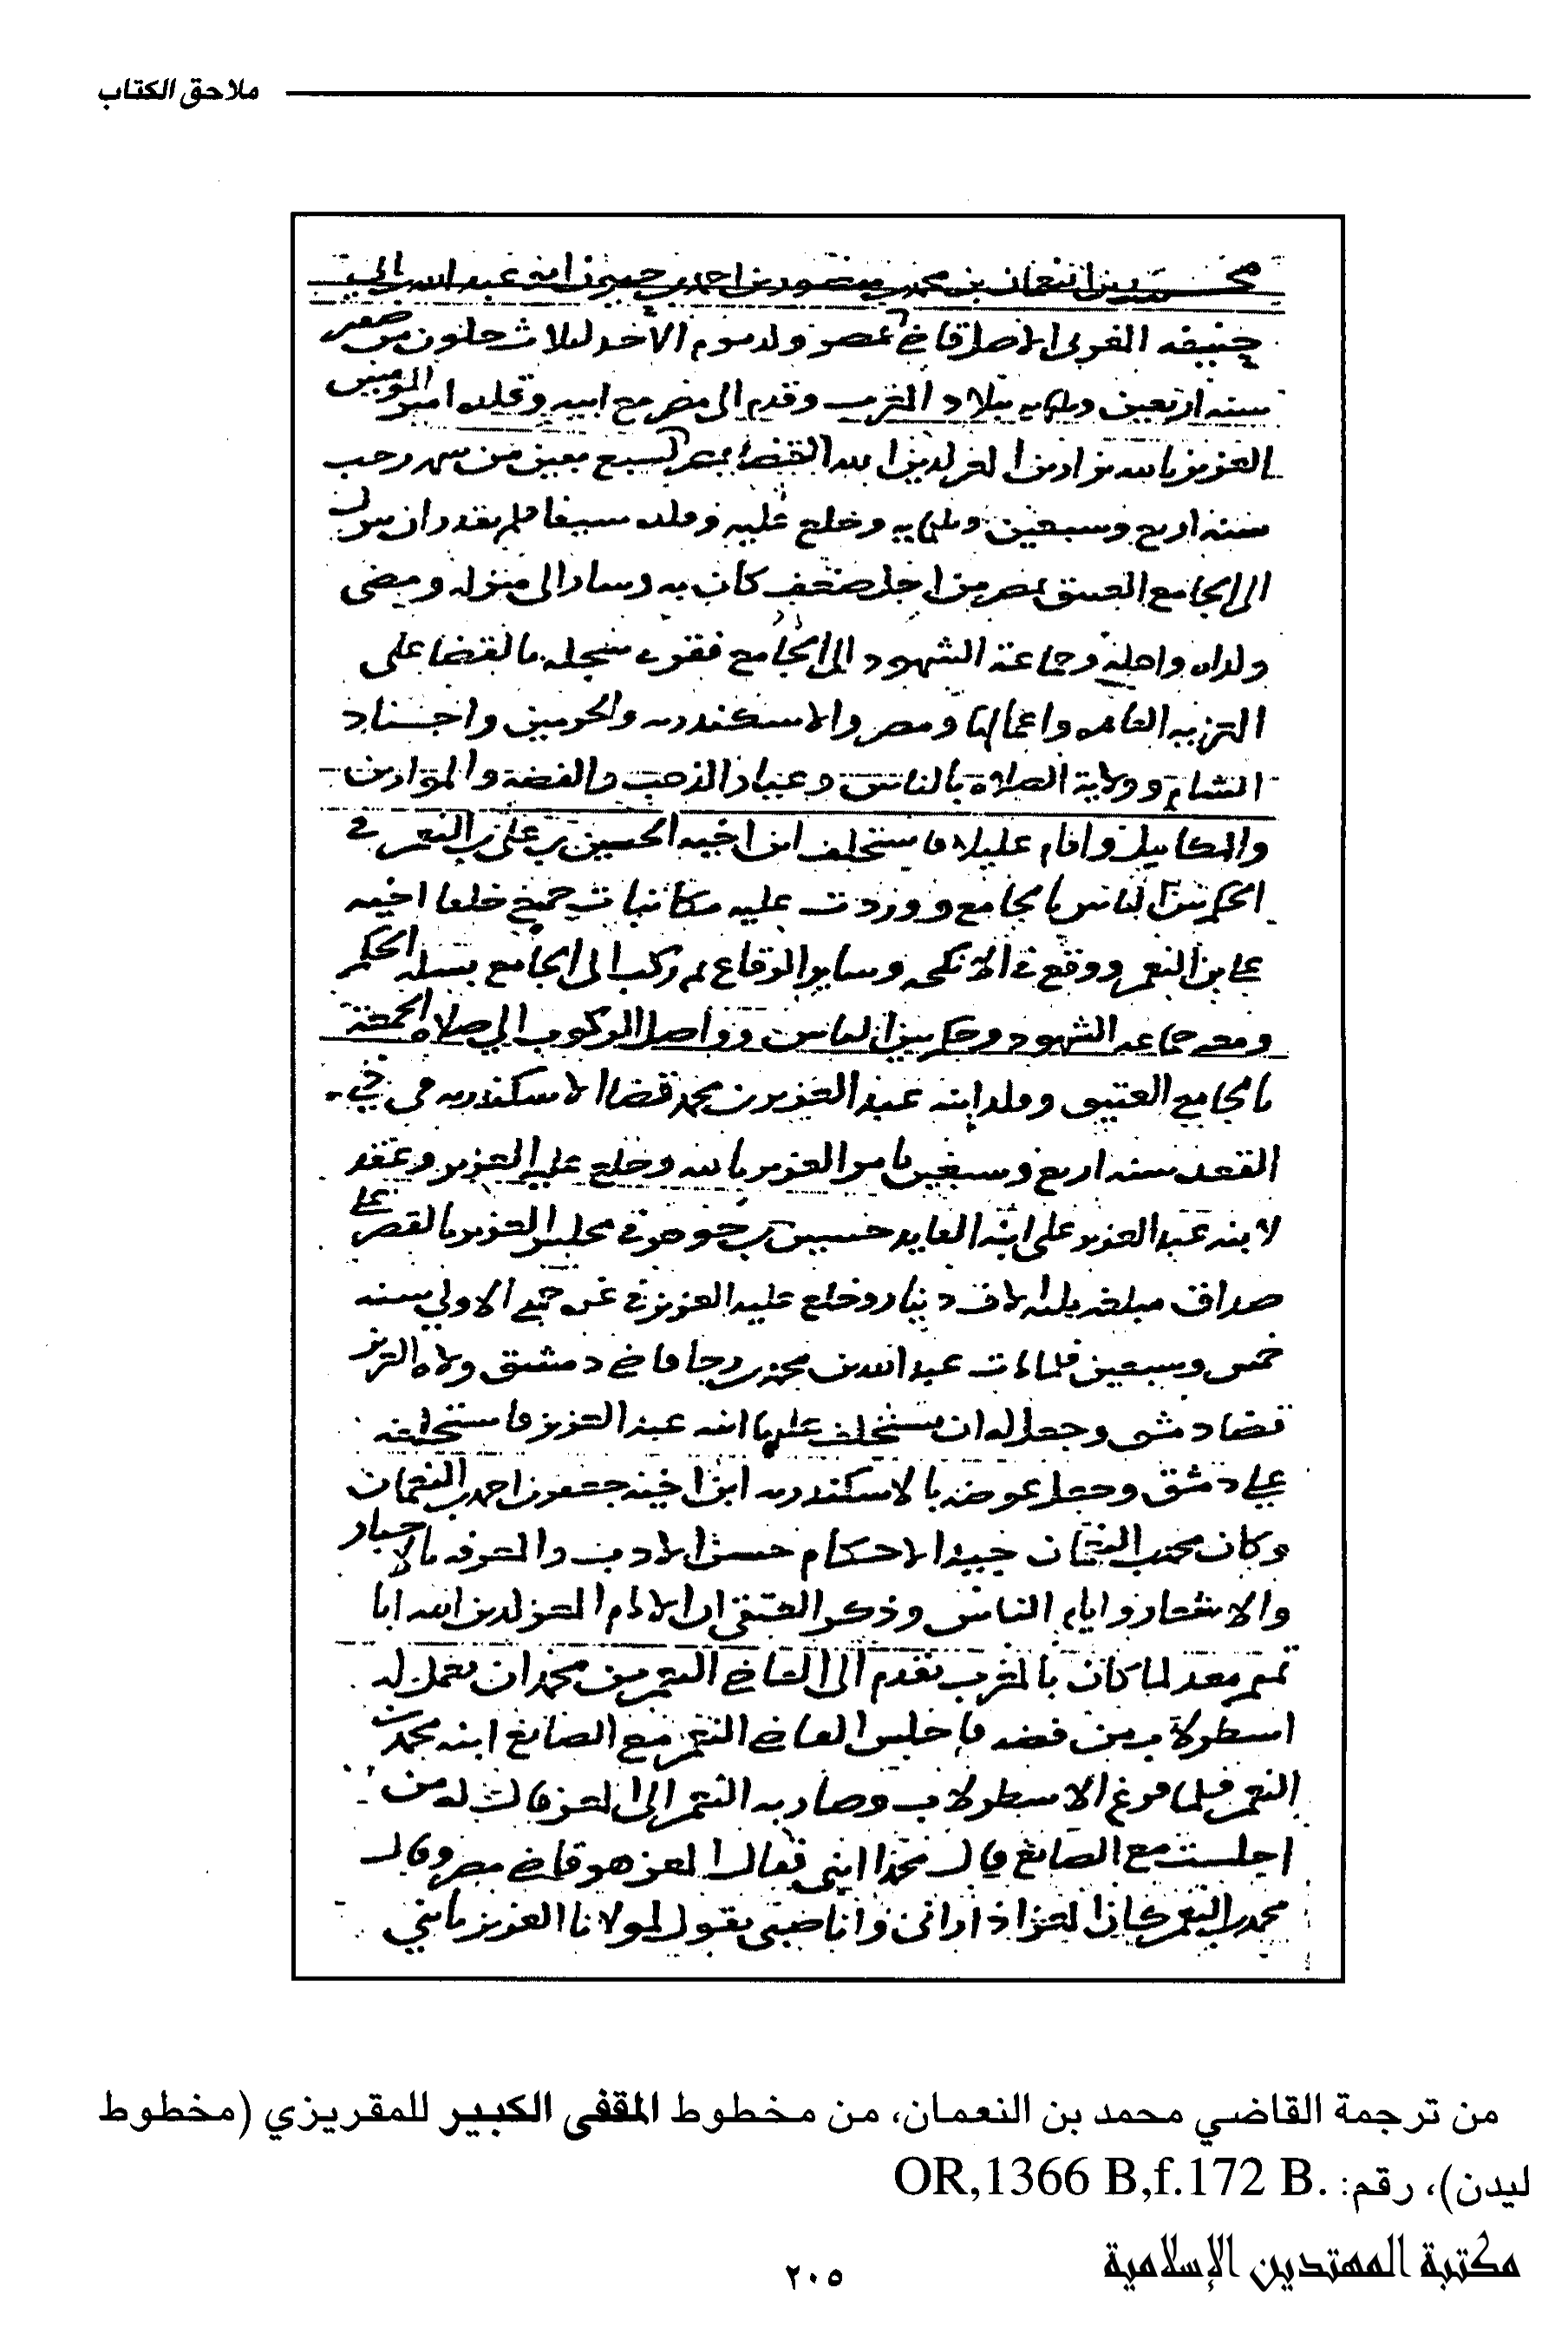 ملاحق الكتاب
محمد بن النعمان بن محمد بن منصور بن احمد بن حيون ابو عبد الله بن ابي
حنيفه المغربي الاصل قاضي مصر ولد يوم الاحد لثلاث خلون من صفر
سنه اربعين وثلثمايه ببلاد المغرب وقدم الى مصر مع ابيه وقلده امير المومنين
العزيز بالله نزار بن المعز لدين الله القضا بمصر لسبع بقين من رجب
سنه اربع وسبعين وثلثمايه وخلع عليه وقلده سيفا فلم يقدر ان ينزل
الى الجامع العتيق بمصر من اجل ضعف كان به وسار الى منزله ومضى
ولداه واهله وجماعة الشهود الى الجامع فقرى سجله بالقضا على
القاهره واعمالها ومصر والاسكندريه والحرمين واجناد
الشام وولاية الصلاة بالناس وعيار الذهب والفضه والموازين
والمكاييل واقام عليلا فاستخلف ابن اخيه الحسين بن علي بن النعمن في
الحكم بين الناس بالجامع ووردت عليه مكاتبات جميع خلفا اخيه
علي بن النعمن ووقع في الانكحه وساير الرقاع ثم ركب الى الجامع الحكم
ومعه جماعه الشهود وحكم بين الناس وواصل الركوب الى صلاة الجمعة
بالجامع العتيق وقلد ابنه عبد العزيز بن محمد قضا الاسكندريه في ذي
القعده سنه اربع وسبعين بامر العزيز بالله وخلع عليه العزيز وعقد
لابنه عبد العزيز على ابنة القايد حسين بن جوهر في مجلس العزيز بالقصر على
صداق مبلغه ثلثه الاف دينار وخلع عليه العزيز في جمدى الاولي سنه
خمس وسبعين فلما مات عبد الله بن محمد بن رجا قاضي دمشق ولاه العزيز
قضا دمشق وجعل له ان يستخلف عليها ابنه عبد العزيز فاستخلفه
على دمشق وجعل عوضه بالاسكندريه ابن اخيه جعفر بن احمد بن النعمان
وكان محمد بن النعمان جيد الاحكام حسن الادب والمعرفه بالاخبار
والاشعار وايام الناس وذكر العتقي ان الامام المعز لدين الله ابا
تميم معد لما كان بالمغرب تقدم الى القاضي النعمن بن محمد ان يعمل له
اسطرلاب من فضه فاجلس القاضي النعمن مع الصانع ابنه محمد بن
النعمن فلما فرغ الاسطرلاب وصار به النعمن الى المعز قال له من
اجلست مع الصانع قال محمدا ابني فقال المعز هو قاضي مصر وقال
محمد بن النعمن كان المعز اذا راني وانا صبي يقول لمولانا العزيز يا بني
من ترجمة القاضي محمد بن النعمان، من مخطوط المقفى الكبير للمقريزي (مخطوط
ليدن)، رقم: OR,1366 B,f.172 B.
مكتبة المهتدين الإسلامية
٢٠٥